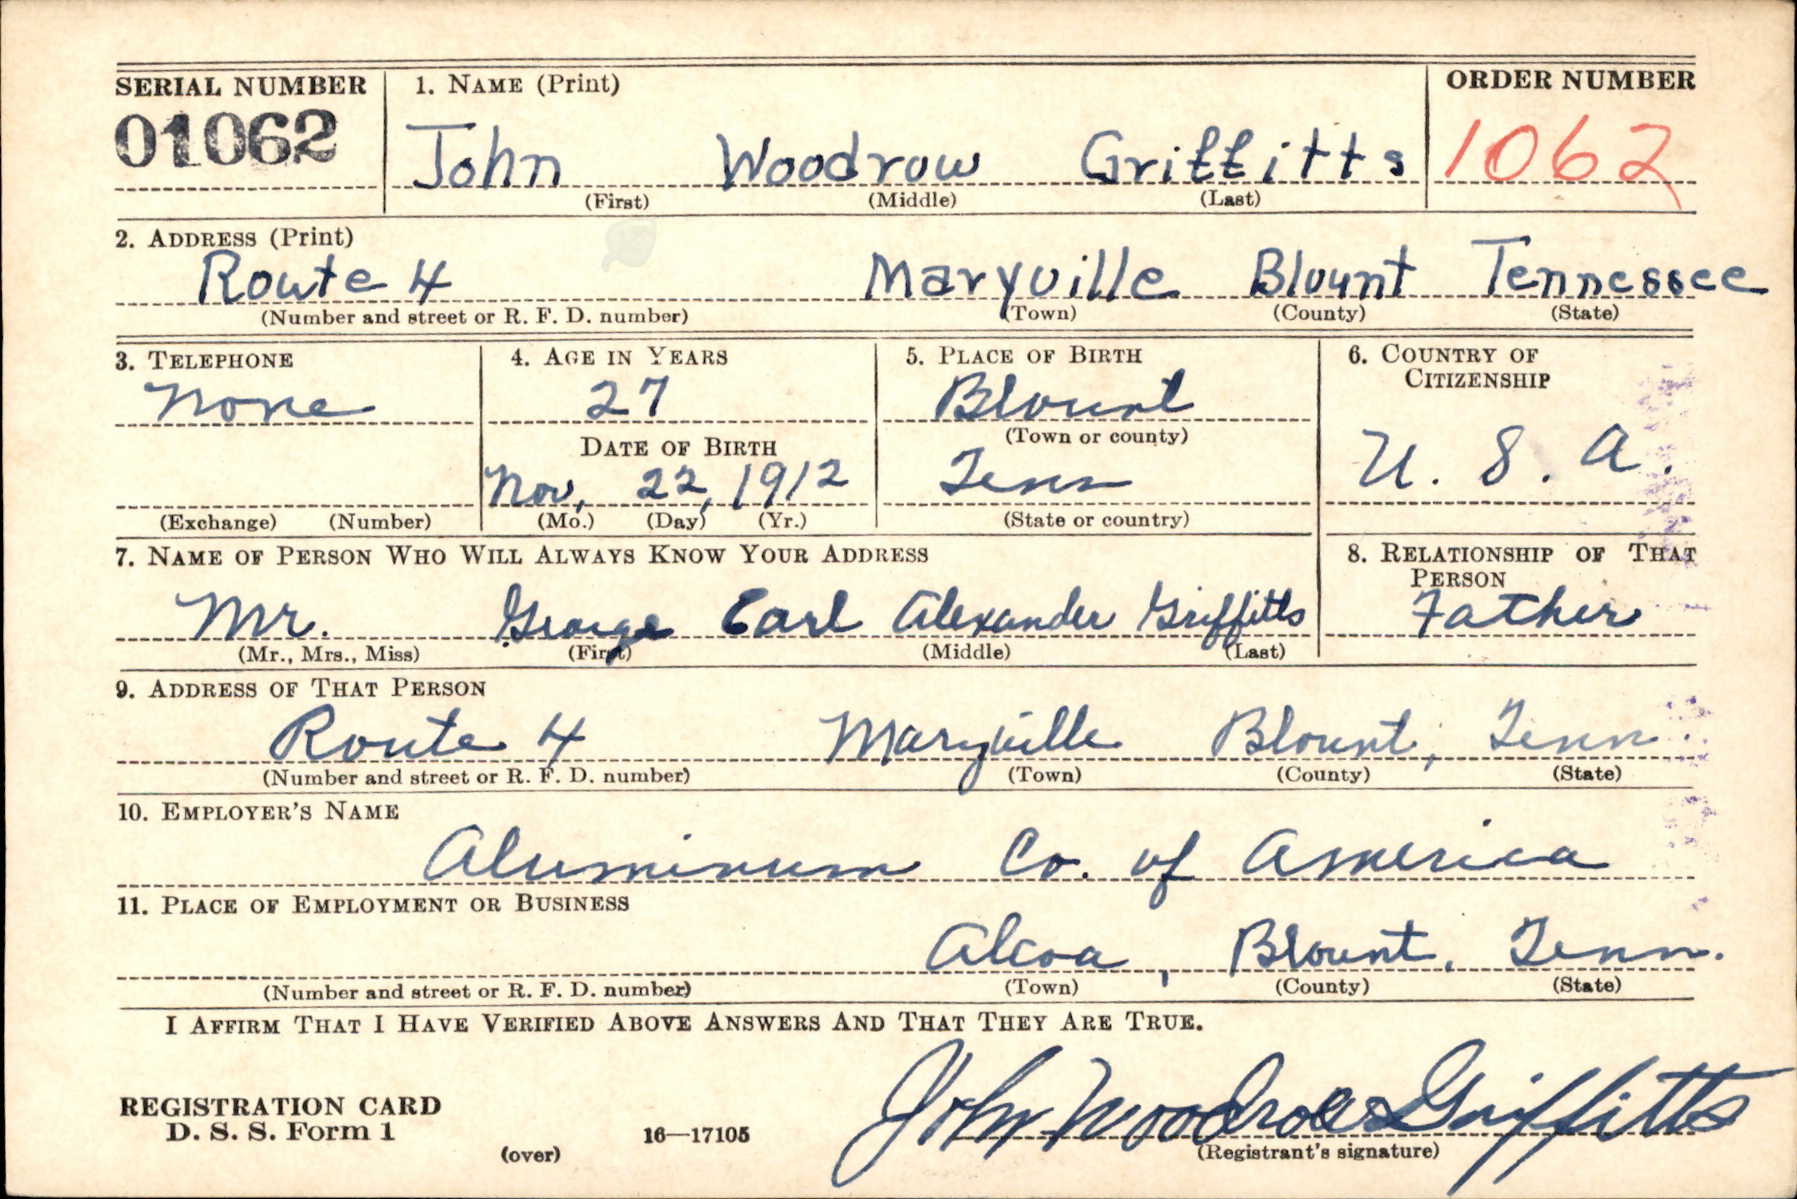 SERIAL NUMBER 1. NAME (Print) ORDER NUMBER
01062 John Woodrow Griffitts 1062
(First) (Middle) (Last)
2. ADDRESS (Print)
Route 4 Maryville Blount Tennessee
(Number and street or R. F. D. number) (Town) (County) (State)
3. TELEPHONE 4. AGE IN YEARS 5. PLACE OF BIRTH 6. COUNTRY OF
CITIZENSHIP
None 27 Blount
(Town or county)
DATE OF BIRTH
Nov, 22, 1912 Tenn U. S. A.
(Exchange) (Number) (Mo.) (Day) (Yr.) (State or country)
7. NAME OF PERSON WHO WILL ALWAYS KNOW YOUR ADDRESS 8. RELATIONSHIP OF THAT
PERSON
Mr. George Earl Alexander Griffitts Father
(Mr., Mrs., Miss) (First) (Middle) (Last)
9. ADDRESS OF THAT PERSON
Route 4 Maryville Blount, Tenn.
(Number and street or R. F. D. number) (Town) (County) (State)
10. EMPLOYER'S NAME
Aluminum Co. of America
11. PLACE OF EMPLOYMENT OR BUSINESS
Alcoa, Blount, Tenn.
(Number and street or R. F. D. number) (Town) (County) (State)
I AFFIRM THAT I HAVE VERIFIED ABOVE ANSWERS AND THAT THEY ARE TRUE.
John Woodrow Griffitts
REGISTRATION CARD
D. S. S. Form 1 16—17105
(over) (Registrant's signature)